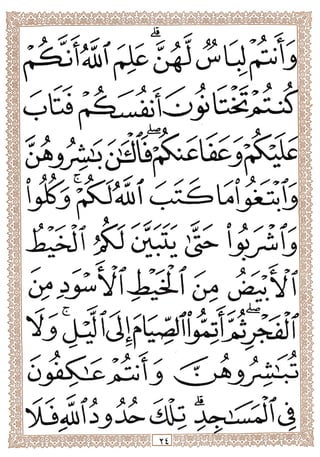 وَأَنتُمْ لِبَاسٌ لَّهُنَّ ۗ عَلِمَ ٱللَّهُ أَنَّكُمْ
كُنتُمْ تَخْتَانُونَ أَنفُسَكُمْ فَتَابَ
عَلَيْكُمْ وَعَفَا عَنكُمْ ۖ فَٱلْـَٰٔنَ بَـٰشِرُوهُنَّ
وَٱبْتَغُوا۟ مَا كَتَبَ ٱللَّهُ لَكُمْ ۚ وَكُلُوا۟
وَٱشْرَبُوا۟ حَتَّىٰ يَتَبَيَّنَ لَكُمُ ٱلْخَيْطُ
ٱلْأَبْيَضُ مِنَ ٱلْخَيْطِ ٱلْأَسْوَدِ مِنَ
ٱلْفَجْرِ ۖ ثُمَّ أَتِمُّوا۟ ٱلصِّيَامَ إِلَى ٱلَّيْلِ ۚ وَلَا
تُبَـٰشِرُوهُنَّ وَأَنتُمْ عَـٰكِفُونَ
فِى ٱلْمَسَـٰجِدِ ۗ تِلْكَ حُدُودُ ٱللَّهِ فَلَا
٢٤